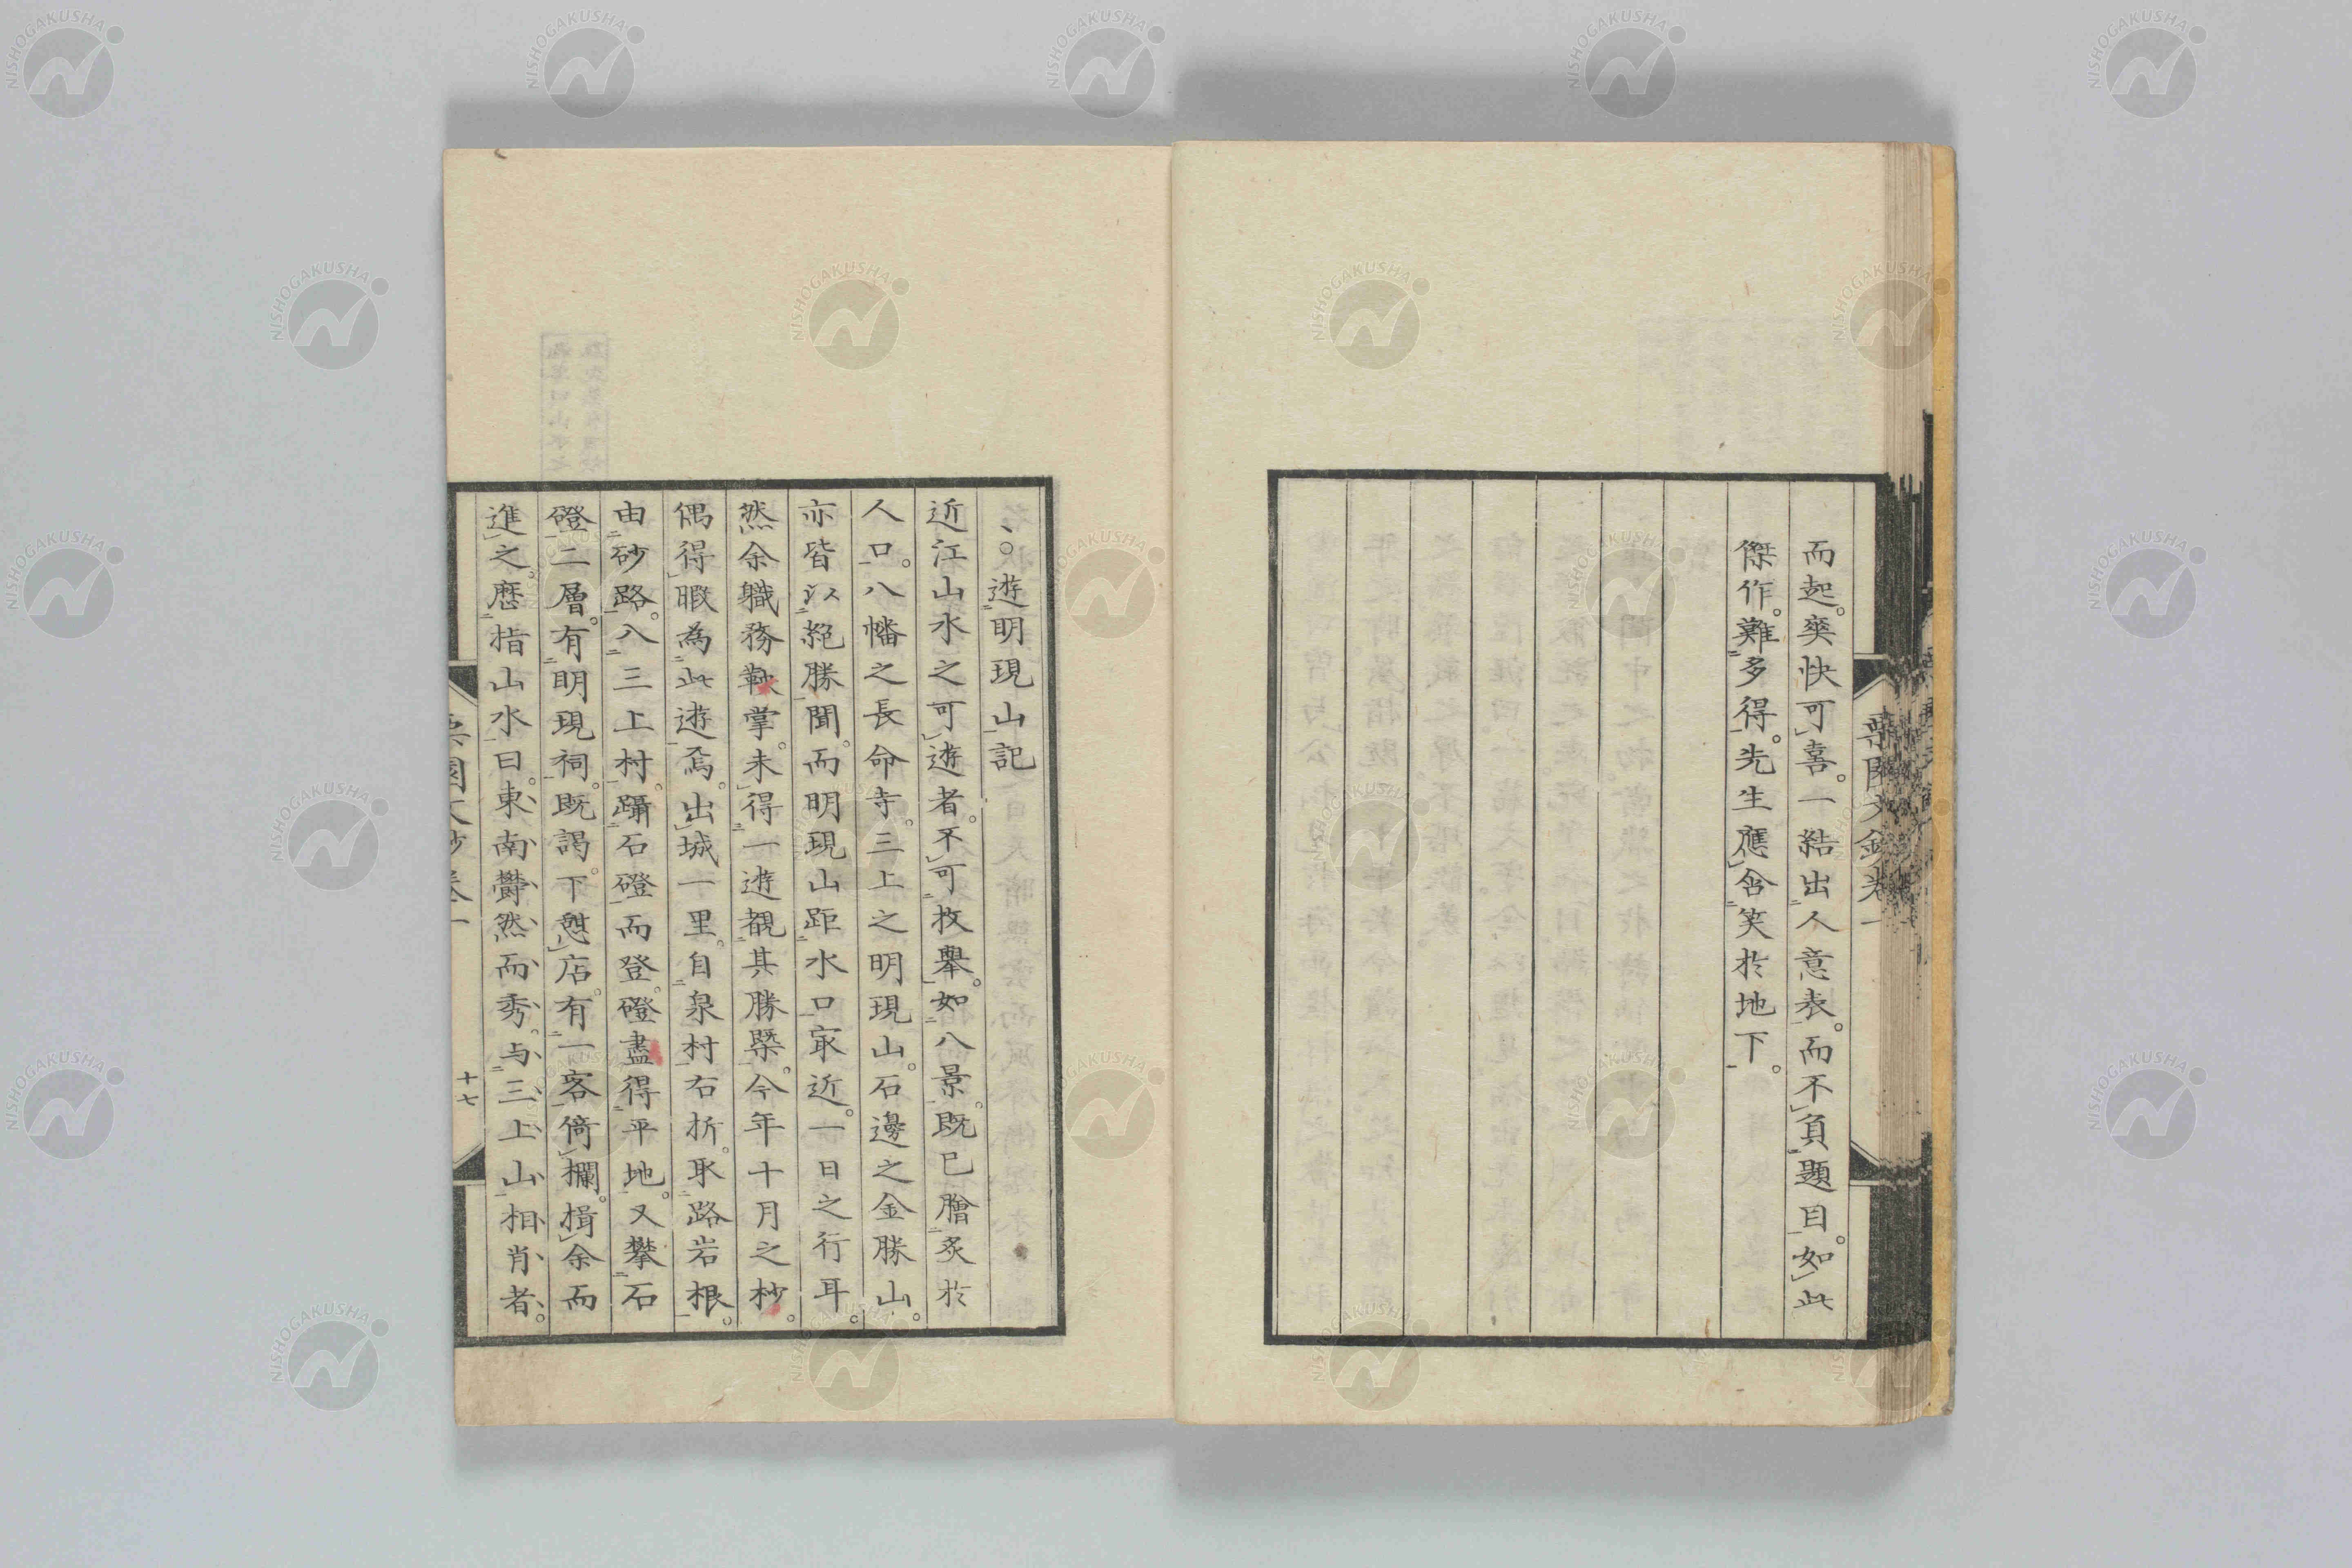 而起。爽快可喜。一結出人意表。而不負題目。如此
傑作。難多得。先生應含笑於地下。
遊明現山記
近江山水之可遊者。不可枚舉。如八景。既已膾炙於
人口。八幡之長命寺。三上之明現山。石邊之金勝山。
亦皆以絕勝聞。而明現山距水口㝡近。一日之行耳。
然余職務鞅掌。未得一遊覩其勝槩。今年十月之杪。
偶得暇為此遊焉。出城一里。自泉村右折。取路岩根。
由砂路。入三上村。躡石磴而登。磴盡得平地。又攀石
磴二層。有明現祠。既謁。下憇店。有一客倚欄。揖余而
進之。歷指山水曰。東南欝然而秀。与三上山相肖者。
十七
NISHOGAKUSHA